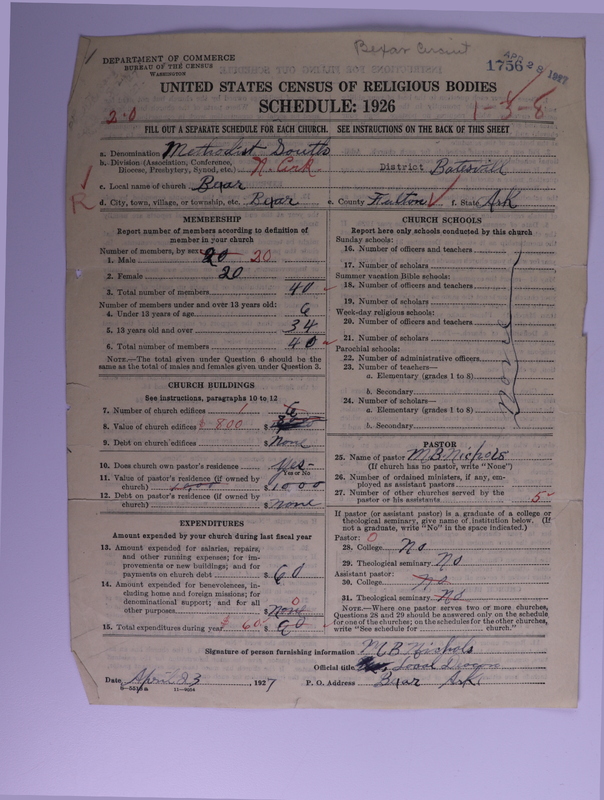 Bexar Circuit
DEPARTMENT OF COMMERCE
BUREAU OF THE CENSUS
WASHINGTON
APR 28 1927
1756
UNITED STATES CENSUS OF RELIGIOUS BODIES
SCHEDULE: 1926
2-0
1-3-8
FILL OUT A SEPARATE SCHEDULE FOR EACH CHURCH. SEE INSTRUCTIONS ON THE BACK OF THIS SHEET
a. Denomination Methodist South
b. Division (Association, Conference, Diocese, Presbytery, Synod, etc.) N. Ark. District Batesvill
c. Local name of church Bexar
R
d. City, town, village, or township, etc. Bexar e. County Fulton f. State Ark
MEMBERSHIP
Report number of members according to definition of
member in your church
Number of members, by sex:
1. Male 20 20
2. Female 20
3. Total number of members 40
Number of members under and over 13 years old:
4. Under 13 years of age 6
5. 13 years old and over 34
6. Total number of members 40
NOTE.—The total given under Question 6 should be the
same as the total of males and females given under Question 3.
CHURCH BUILDINGS
See instructions, paragraphs 10 to 12
7. Number of church edifices 1
8. Value of church edifices $ 800 $
9. Debt on church edifices $ none
10. Does church own pastor's residence yes-
Yes or No
11. Value of pastor's residence (if owned by
church) $ 1000
12. Debt on pastor's residence (if owned by
church) $ none
EXPENDITURES
Amount expended by your church during last fiscal year
13. Amount expended for salaries, repairs,
and other running expenses; for im-
provements or new building; and for
payments on church debt $ 60
14. Amount expended for benevolences, in-
cluding home and foreign missions; for
denominational support; and for all
other purposes $ none 0
15. Total expenditures during year $ 60 $ 90
CHURCH SCHOOLS
Report here only schools conducted by this church
Sunday schools:
16. Number of officers and teachers
17. Number of scholars
Summer vacation Bible schools:
18. Number of officers and teachers
19. Number of scholars
Week-day religious schools:
20. Number of officers and teachers
21. Number of scholars
Parochial schools:
22. Number of administrative officers
23. Number of teachers—
a. Elementary (grades 1 to 8)
b. Secondary
24. Number of scholars—
a. Elementary (grades 1 to 8)
b. Secondary
None
PASTOR
25. Name of pastor M.B. Nichols
(If church has no pastor, write "None")
26. Number of ordained ministers, if any, em-
ployed as assistant pastors
27. Number of other churches served by the
pastor or his assistants 5
If pastor (or assistant pastor) is a graduate of a college or
theological seminary, give name of institution below. (If
not a graduate, write "No" in the space indicated.)
Pastor: 0
28. College No
29. Theological seminary No
Assistant pastor:
30. College No
31. Theological seminary No
NOTE.—Where one pastor serves two or more churches,
Questions 28 and 29 should be answered only on the schedule
for one of the churches; on the schedules for the other churches,
write "See schedule for church."
Signature of person furnishing information M B Nichols
Official title Local Deacon
Date April 23 1927 P. O. Address Bexar Ark.
11—9054